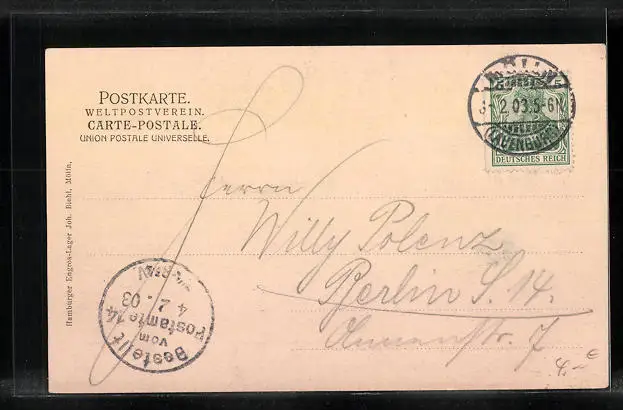 POSTKARTE.
WELTPOSTVEREIN.
CARTE-POSTALE.
UNION POSTALE UNIVERSELLE.
MÖLLN
2.03.5-6N
(LAUENBURG)
5 5
DEUTSCHES REICH
Herrn
Willy Polenz
Berlin S. 14.
Annenstr. 7
Hamburger Engros-Lager Joh. Riehl, Mölln.
Bestellt
vom
Postamte 14
4. 2. 03
4.- €